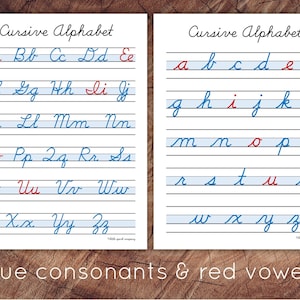 Cursive Alphabet
Bb Cc Dd Ee
Gg Hh Ii Jj
Ll Mm Nn
Pp Qq Rr Ss
Uu Vv Ww
Xx Yy Zz
Cursive Alphabet
a b c d e
g h i j k
m n o p
r s t u
w x y z
ue consonants & red vowe